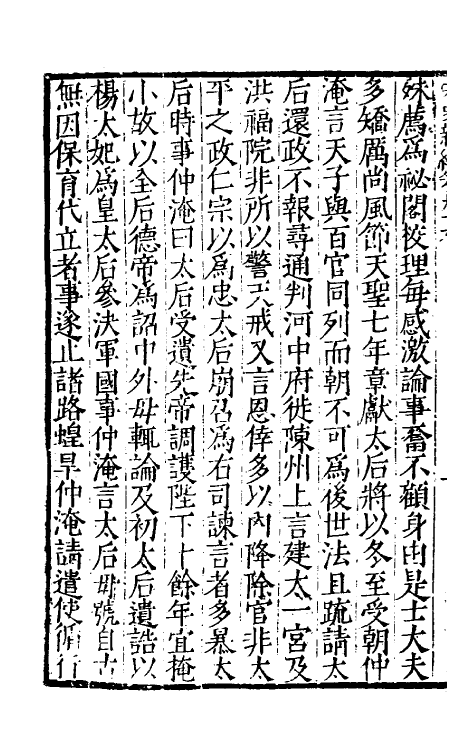 殊薦爲祕閣校理每感激論事奮不顧身由是士大夫
多矯厲尚風節天聖七年章獻太后將以冬至受朝仲
淹言天子與百官同列而朝不可爲後世法且䟽請太
后還政不報尋通判河中府徙陳州上言建太一宮及
洪福院非所以警天戒又言恩倖多以內降除官非太
平之政仁宗以爲忠太后崩召爲右司諫言者多暴太
后時事仲淹曰太后受遺先帝調護陛下十餘年宜掩
小故以全后德帝爲詔中外毋輒論及初太后遺誥以
楊太妃爲皇太后參決軍國事仲淹言太后毋號自古
無因保育代立者事遂止諸路蝗旱仲淹請遣使循行